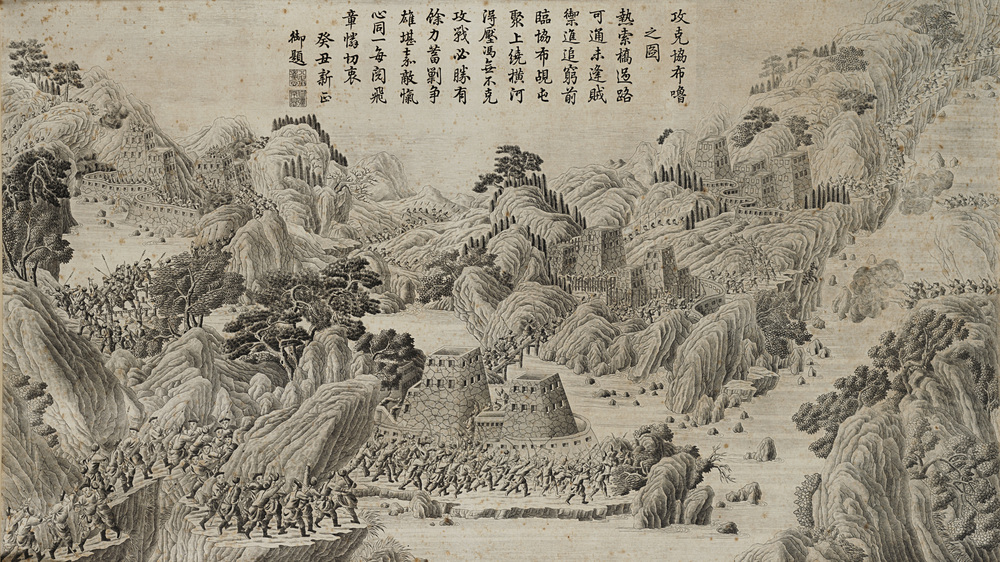 攻克協布嚕
之圖
熱索橋過路
可通未逢賊
禦進追窮前
臨協布覘屯
聚上繞橫河
得壓馮無不克
攻戰必勝有
餘力蓄剿爭
雄堪嘉敵愾
心同一每閱飛
章憐切衷
癸丑新正
御題